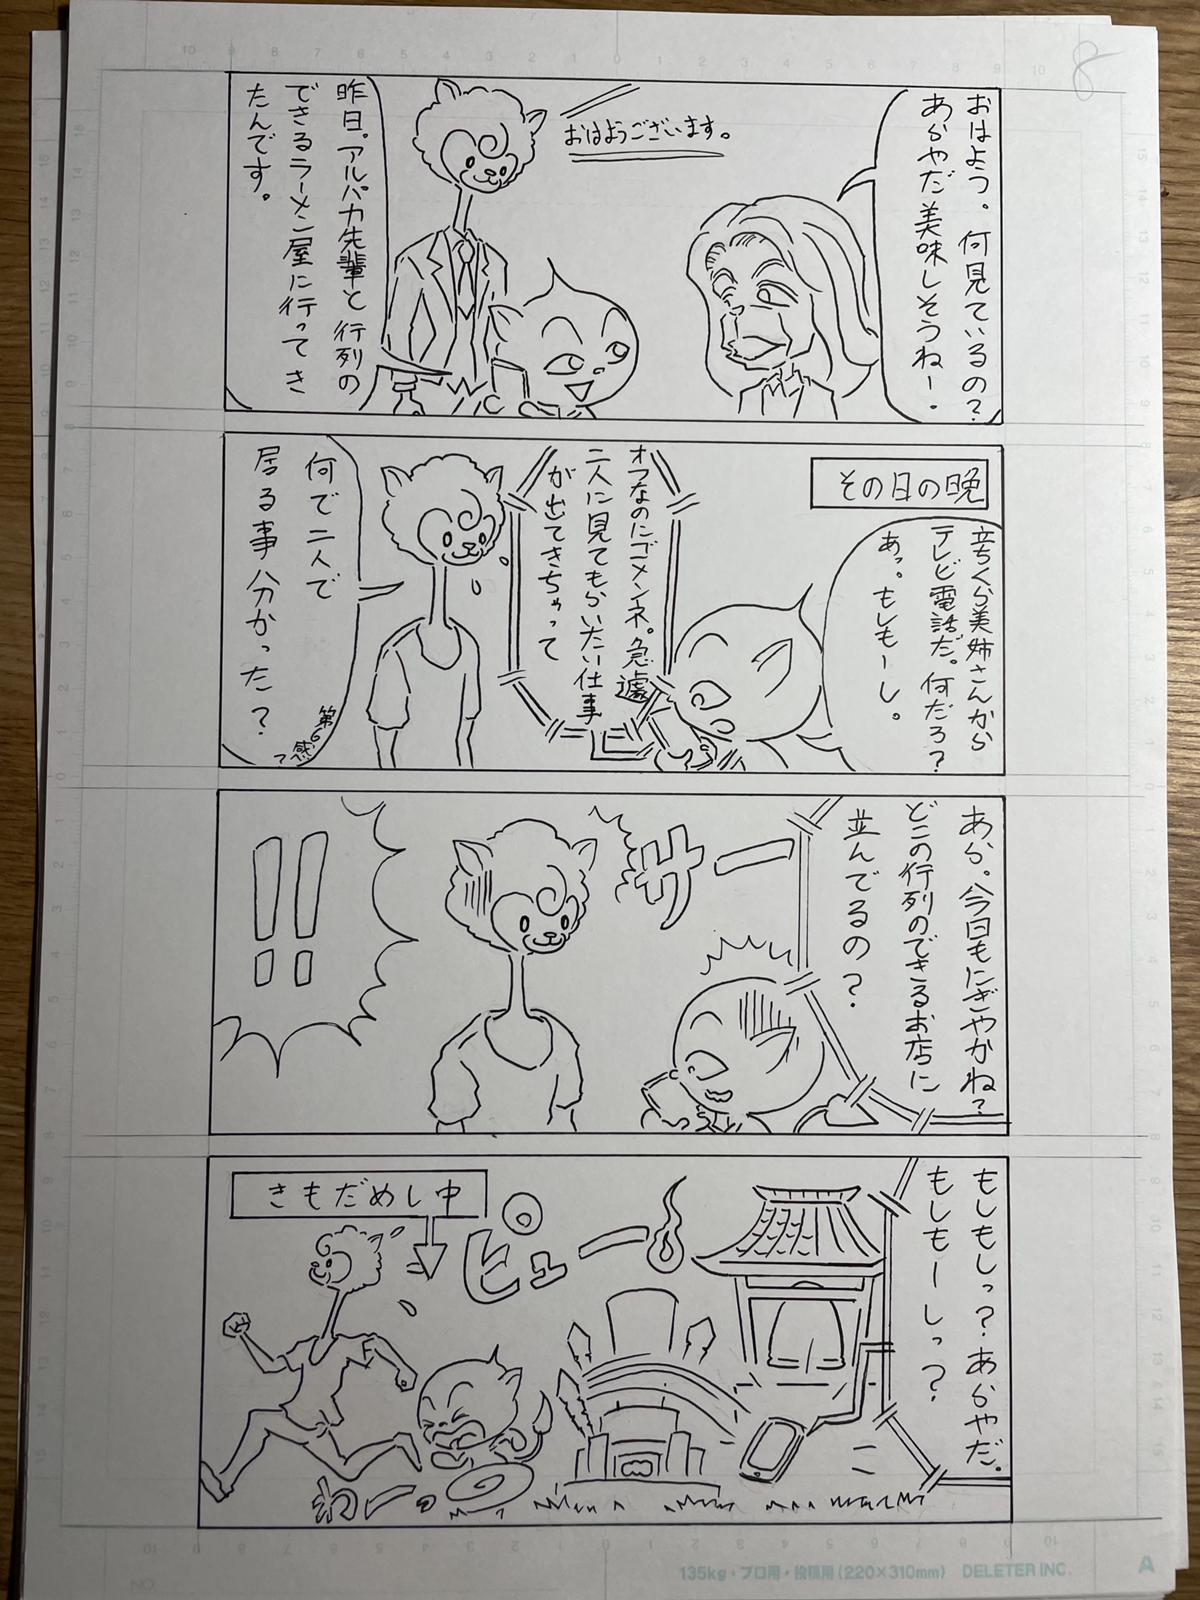 8
おはよう。何見ているの?
あらやだ美味しそうねー。
おはようございます。
昨日。アルパカ先輩と行列の
できるラーメン屋に行ってき
たんです。
その日の晩
立ちくら美姉さんから
テレビ電話だ。何だろ?
あっ。もしもーし。
オフなのにゴメンネ。急遽
二人に見てもらいたい仕事
が出てきちゃって
何で二人で
居る事分かった?
第6
感
?
あら。今日もにぎやかね?
どこの行列のできるお店に
並んでるの?
サー
!!
もしもしっ?あらやだ。
もしもーしっ?
ピューー
きもだめし中
わーっ
135kg・プロ用・投稿用(220×310mm) DELETER INC.
A